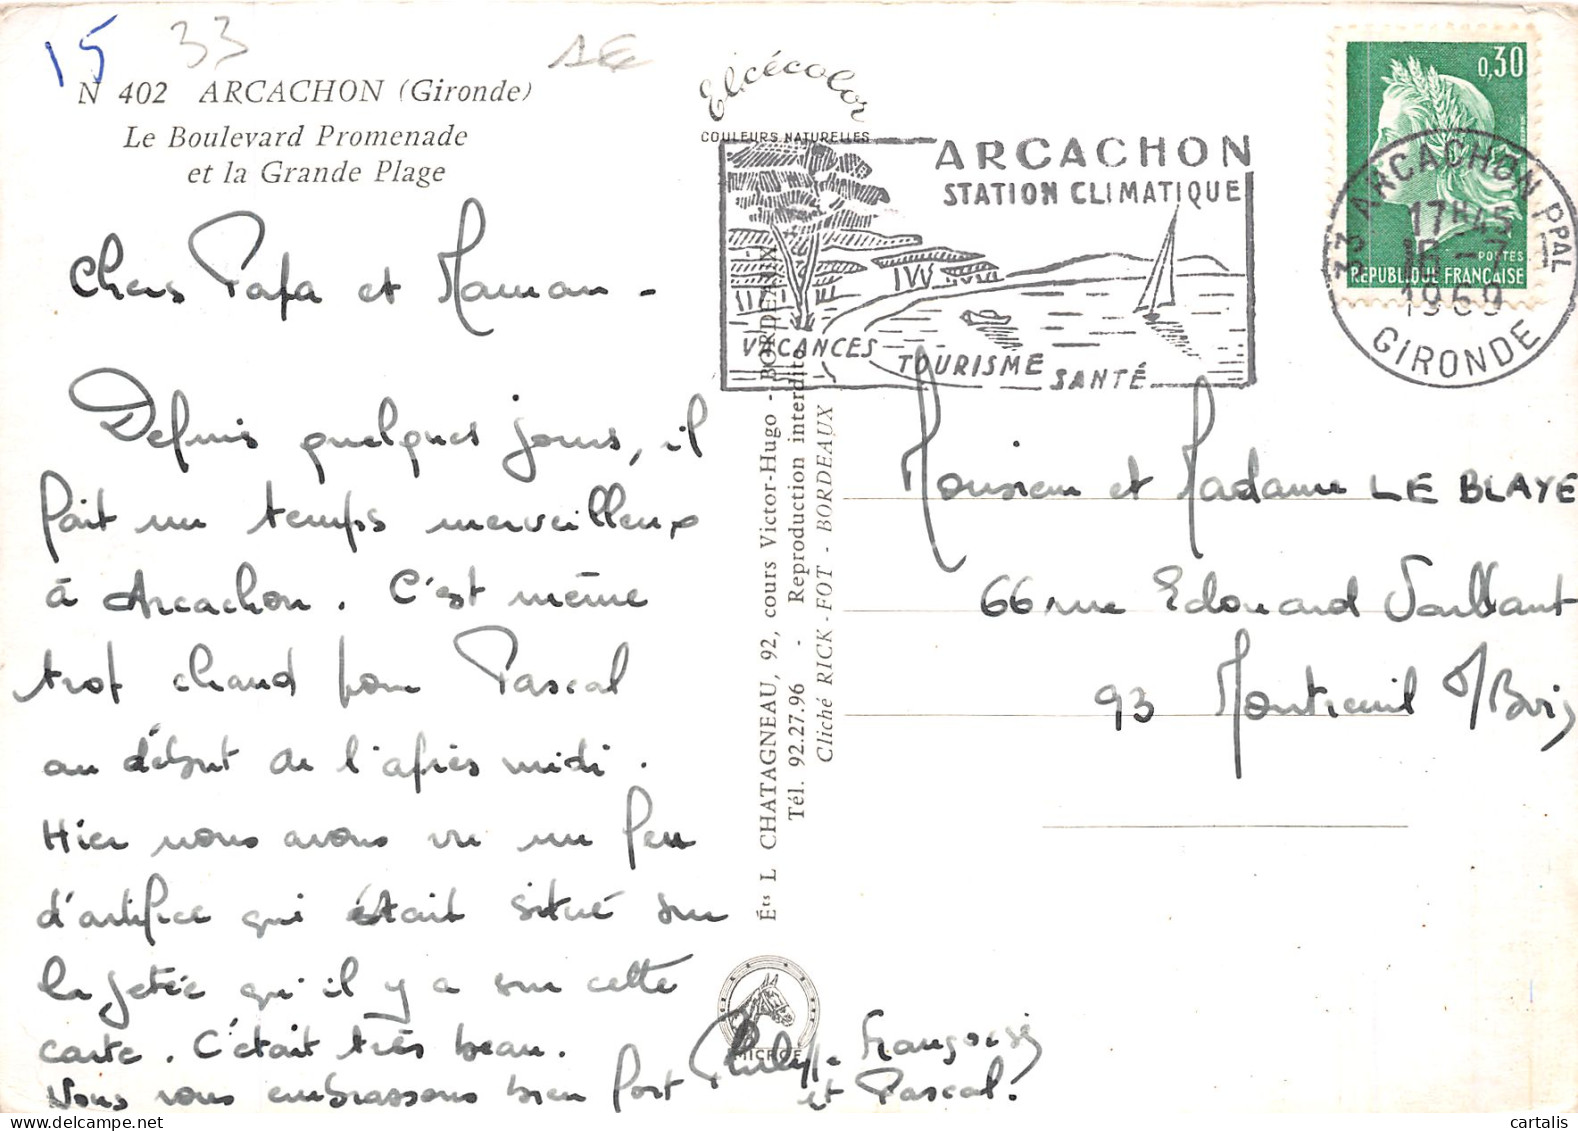 15 33 1€
N 402 ARCACHON (Gironde)
Le Boulevard Promenade
et la Grande Plage
Chers Papa et Maman -
Depuis quelques jours, il
fait un temps merveilleux
à Arcachon. C'est même
trop chaud pour Pascal
au début de l'après midi.
Hier nous avons vu un feu
d'artifice qui était situé sur
la jetée qu'il y a sur cette
carte. C'était très beau.
Nous vous embrassons bien fort Philippe Françoise
et Pascal.
Elcécolor
COULEURS NATURELLES
Éts L CHATAGNEAU, 92, cours Victor-Hugo - BORDEAUX
Tél. 92.27.96 - Reproduction interdite
Cliché RICK-FOT - BORDEAUX
MICRO
ARCACHON
STATION CLIMATIQUE
VACANCES
TOURISME
SANTÉ
0,30
POSTES
REPUBLIQUE FRANÇAISE
33 ARCACHON PPAL
17H45
15 - 7
1969
GIRONDE
Monsieur et Madame LE BLAYE
66 rue Edouard Vaillant
93 Montreuil s/Bois
cartalis